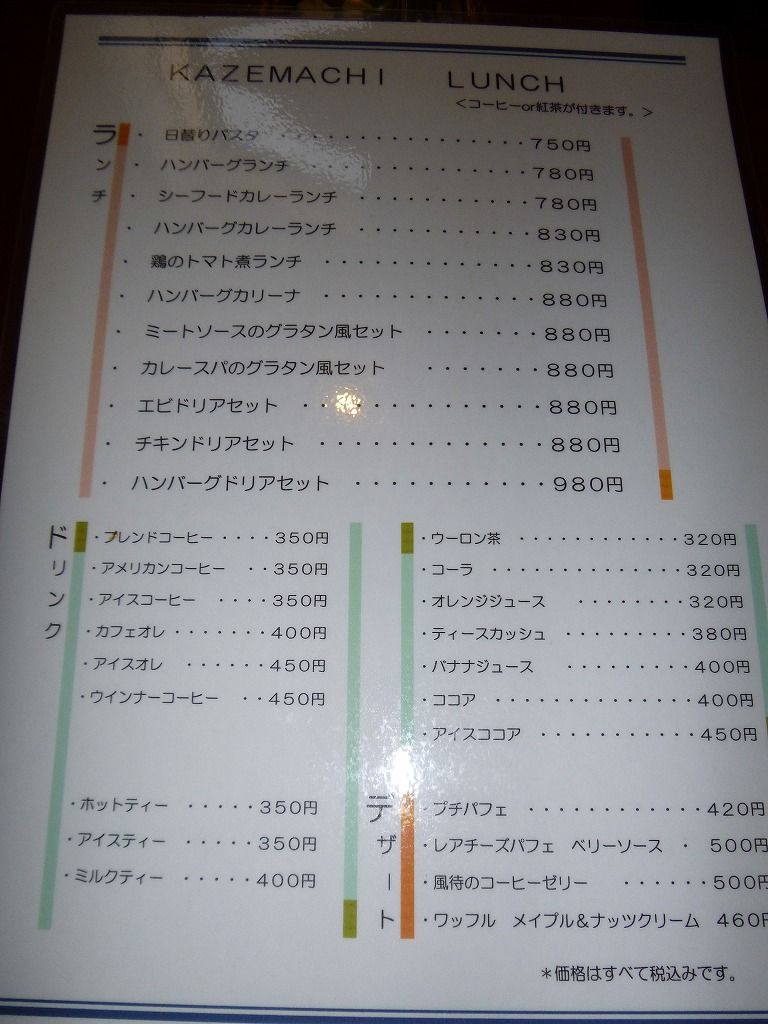 KAZEMACHI LUNCH
＜コーヒーor紅茶が付きます。＞
ランチ
・日替りパスタ ・・・・・・・・・・・・・・・・750円
・ハンバーグランチ ・・・・・・・・・・・・・・780円
・シーフードカレーランチ ・・・・・・・・・・・780円
・ハンバーグカレーランチ ・・・・・・・・・・・830円
・鶏のトマト煮ランチ ・・・・・・・・・・・・・830円
・ハンバーグカリーナ ・・・・・・・・・・・・・880円
・ミートソースのグラタン風セット ・・・・・・・880円
・カレースパのグラタン風セット ・・・・・・・880円
・エビドリアセット ・・・・・・・・・・・・・・880円
・チキンドリアセット ・・・・・・・・・・・・・880円
・ハンバーグドリアセット ・・・・・・・・・・・980円
ドリンク
・ブレンドコーヒー ・・・・350円
・アメリカンコーヒー ・・350円
・アイスコーヒー ・・・・350円
・カフェオレ ・・・・・・・400円
・アイスオレ ・・・・・・450円
・ウインナーコーヒー ・・450円
・ホットティー ・・・・・350円
・アイスティー ・・・・・350円
・ミルクティー ・・・・・400円
・ウーロン茶 ・・・・・・・・・・・・320円
・コーラ ・・・・・・・・・・・・・・320円
・オレンジジュース ・・・・・・・・320円
・ティースカッシュ ・・・・・・・・・380円
・バナナジュース ・・・・・・・・・400円
・ココア ・・・・・・・・・・・・・・400円
・アイスココア ・・・・・・・・・・・450円
デザート
・プチパフェ ・・・・・・・・・・・・420円
・レアチーズパフェ ベリーソース ・ 500円
・風待のコーヒーゼリー ・・・・・・500円
・ワッフル メイプル＆ナッツクリーム 460円
＊価格はすべて税込みです。